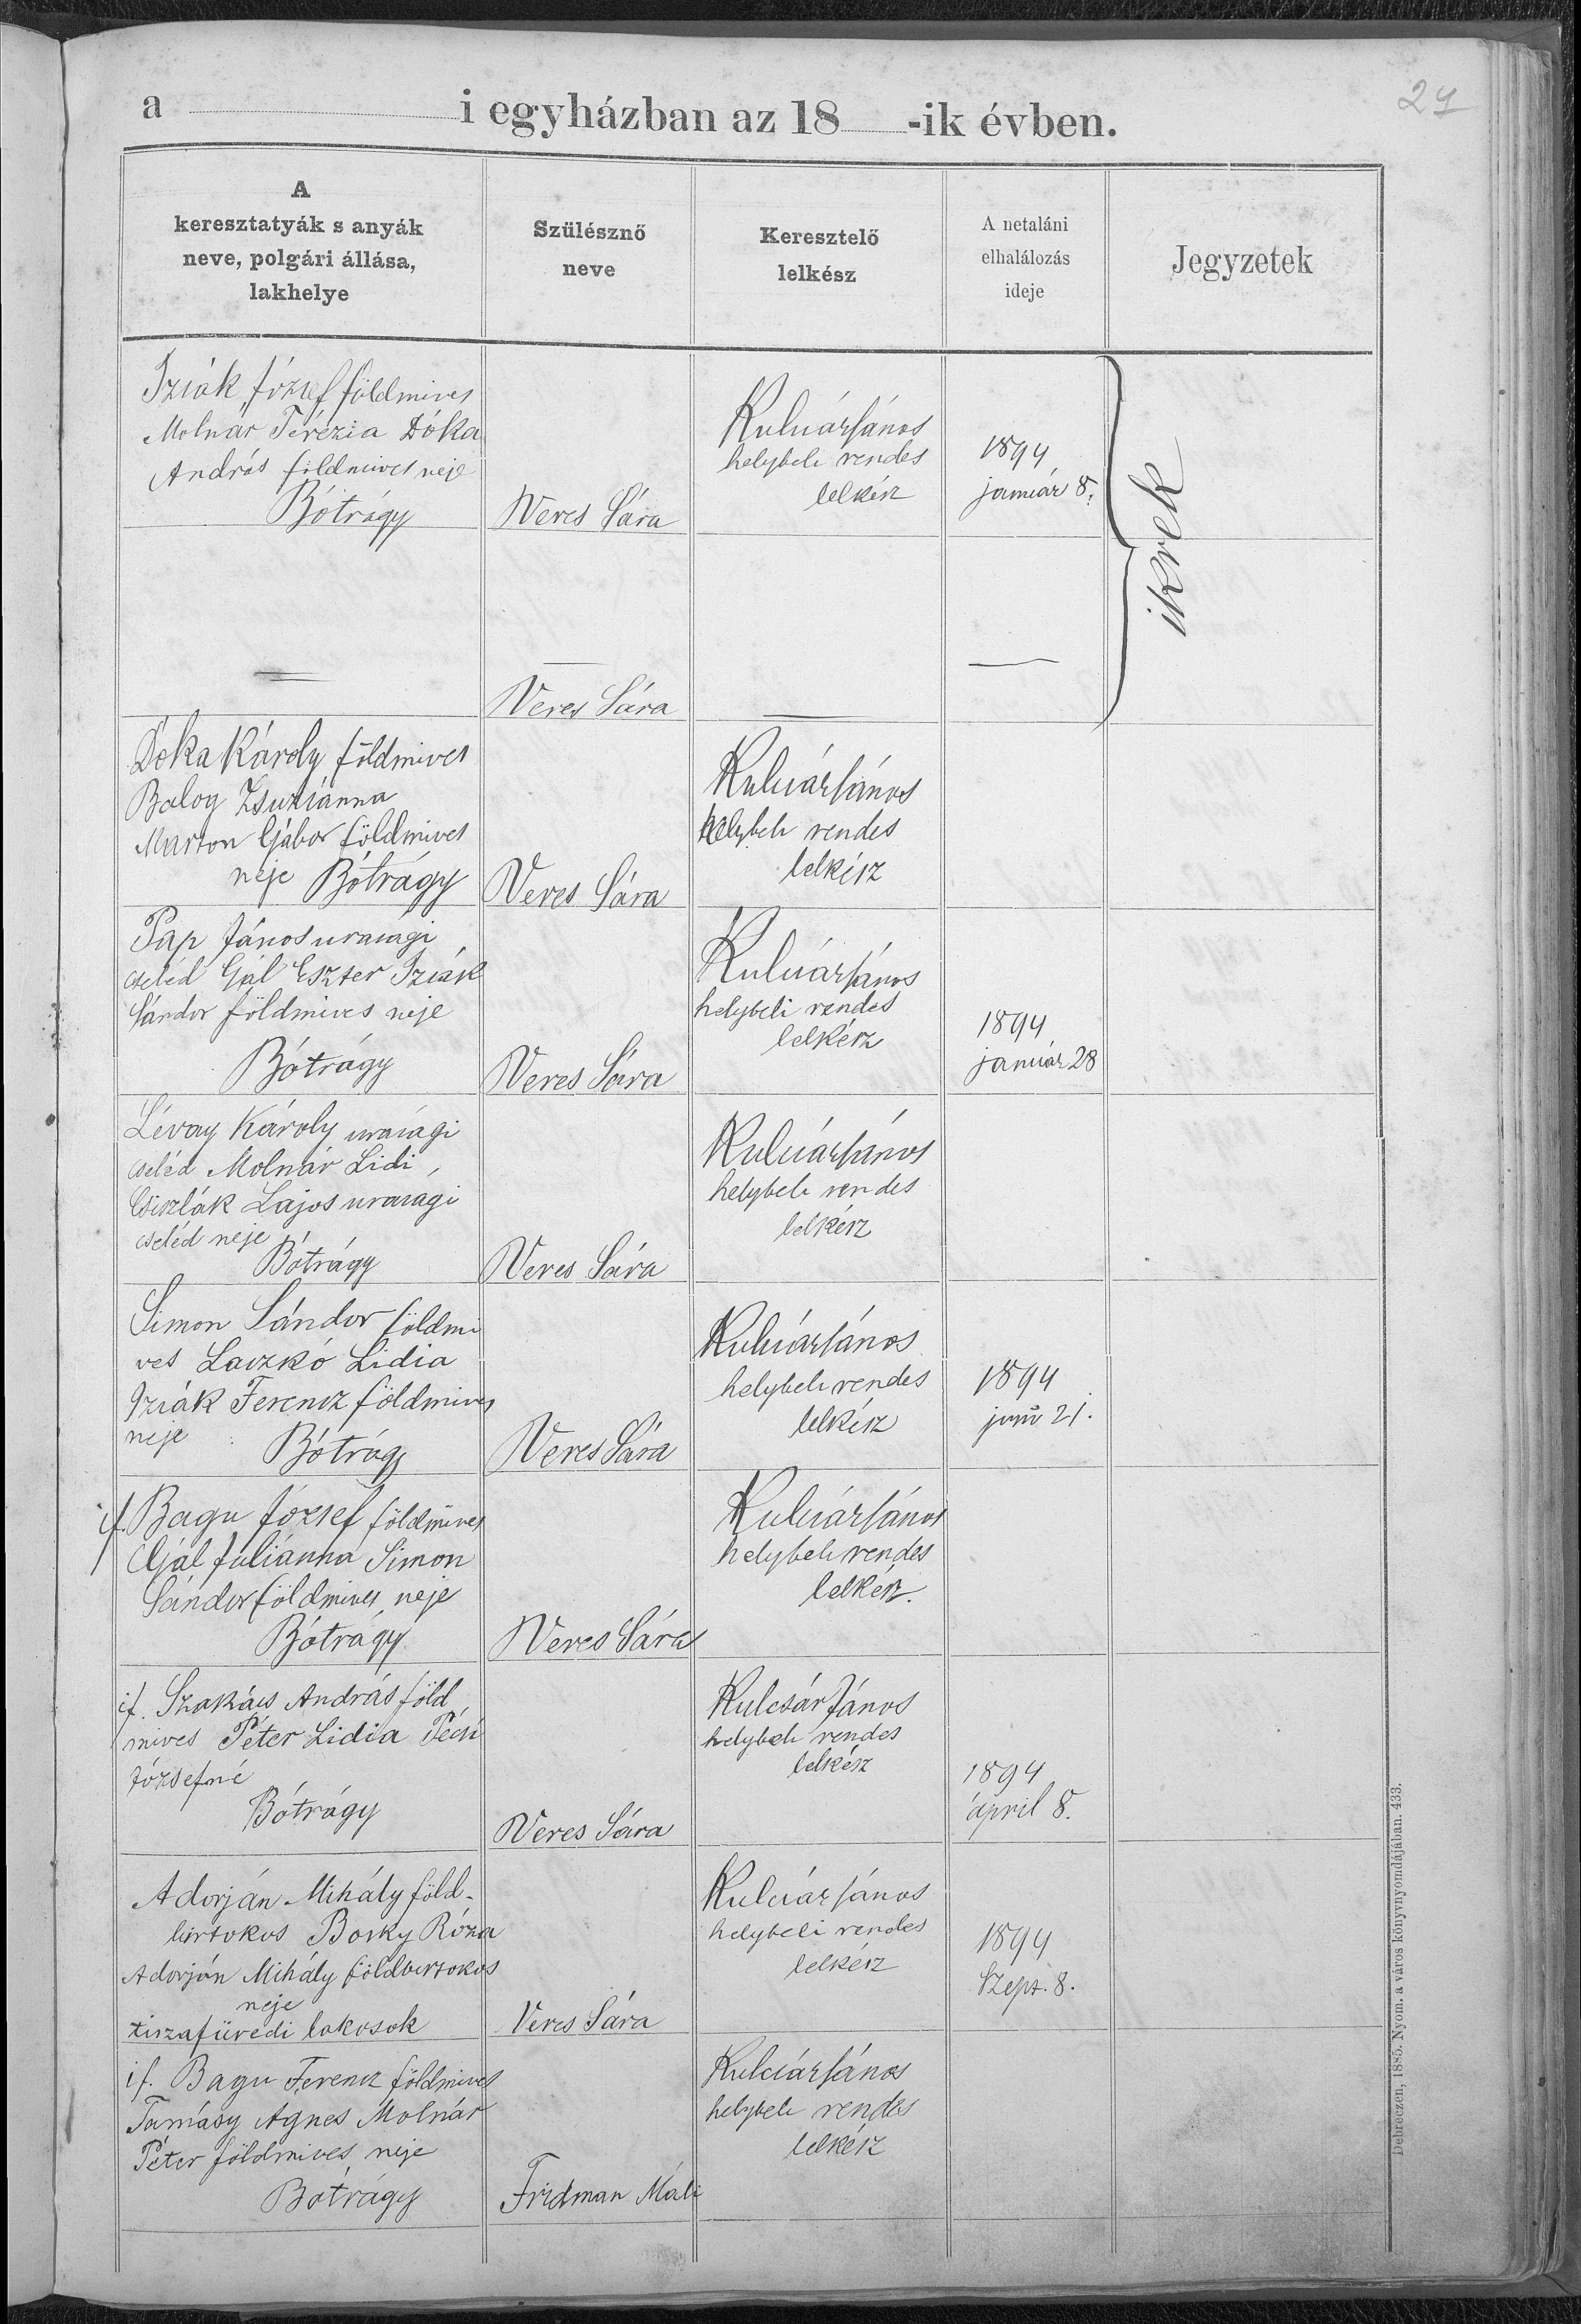 a i egyházban az 18 -ik évben.
A
keresztatyák s anyák
neve, polgári állása,
lakhelye
Szülésznő
neve
Keresztelő
lelkész
A netaláni
elhalálozás
ideje
Jegyzetek
Izsák József földmives
Molnár Terézia Dóka
András földmives neje
Bótrágy
Veres Sára
Kulcsár János
helybeli rendes
lelkész
1894
január 8.
ikrek
Veres Sára
Dóka Károly földmives
Balog Zsuzsánna
Marton Gábor földmives
neje Bótrágy
Veres Sára
Kulcsár János
helybeli rendes
lelkész
Pap János urasági
cseléd Gál Eszter Izsák
Sándor földmives neje
Bótrágy
Veres Sára
Kulcsár János
helybeli rendes
lelkész
1894
január 28
Lévay Károly urasági
cseléd Molnár Lidi,
Lajos urasági
cseléd neje
Bótrágy
Veres Sára
Kulcsár János
helybeli rendes
lelkész
Simon Sándor földmi
ves Laczkó Lidia
Izsák Ferencz földmives
neje
Bótrágy
Veres Sára
Kulcsár János
helybeli rendes
lelkész
1894
juni 21.
if. Bagu József földmives
Gál Juliánna Simon
Sándor földmives neje
Bótrágy
Veres Sára
Kulcsár János
helybeli rendes
lelkész.
if. Szakács András föld
mives Péter Lidia Pécsi
Józsefné
Bótrágy
Veres Sára
Kulcsár János
helybeli rendes
lelkész
1894
april 8.
Adorján Mihály föld-
birtokos Borky Róza
Adorján Mihály földbirtokos
neje
tiszafüredi lakosok
Veres Sára
Kulcsár János
helybeli rendes
lelkész
1894
Szept. 8.
if. Bagu Ferencz földmives
Tamásy Agnes Molnár
Péter földmives neje
Bótrágy
Fridman Máli
Kulcsár János
helybeli rendes
lelkész
Debreczen, 1885. Nyom. a város könyvnyomdájában. 433.